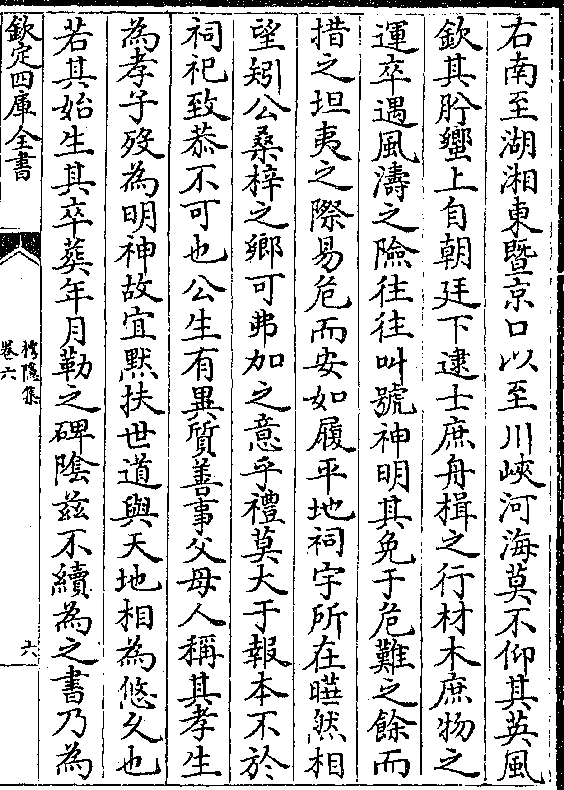 右南至湖湘東暨京口以至川峽河海莫不仰其英風
欽其肸蠁上自朝廷下逮士庶舟楫之行材木庶物之
運卒遇風濤之險徃徃叫號神明其免于危難之餘而
措之坦夷之際易危而安如履平地祠宇所在曄然相
望矧公桑梓之鄉可弗加之意乎禮莫大于報本不於
祠祀致恭不可也公生有異質善事父母人稱其孝生
為孝子歿為明神故宜黙扶世道與天地相為悠久也
若其始生其卒葬年月勒之碑隂兹不續為之書乃為
欽定四庫全書
樗隱集
卷六
六